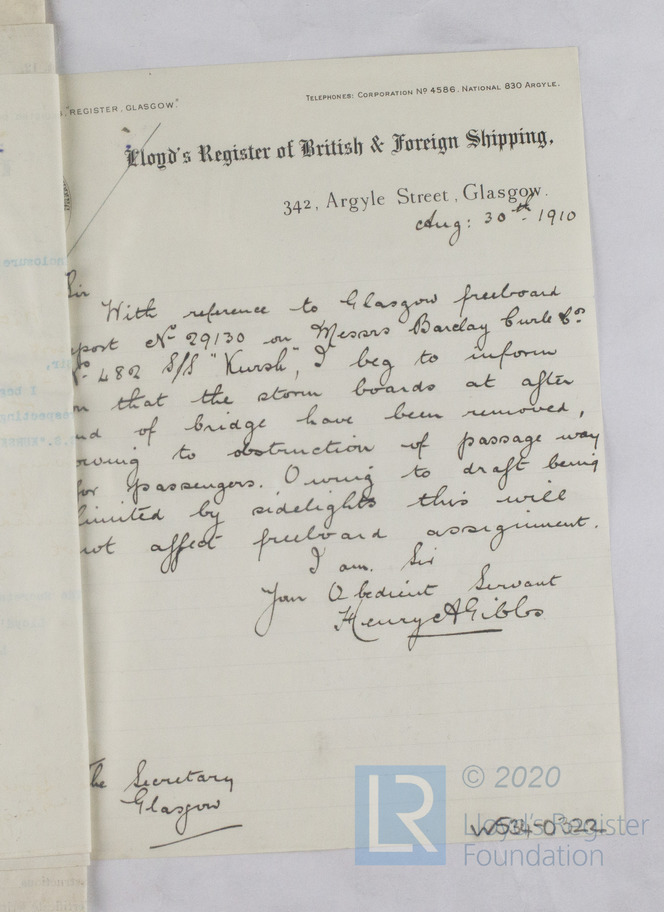 "REGISTER, GLASGOW."
TELEPHONES: CORPORATION No 4586. NATIONAL 830 ARGYLE.
Lloyd's Register of British & Foreign Shipping,
342, Argyle Street, Glasgow.
Aug: 30th 1910
Sir
With reference to Glasgow freeboard
port No 29130 on Messrs Barclay Curle & Co
No 482 S/S "Kursk", I beg to inform
that the storm boards at after
nd of bridge have been removed,
owing to obstruction of passage way
for passengers. Owing to draft being
limited by sidelights this will
not affect freeboard assignment.
I am. Sir
Your Obedient Servant
Henry A Gibbs
The Secretary
Glasgow
LR
© 2020
Lloyd's Register
Foundation
W534-0322